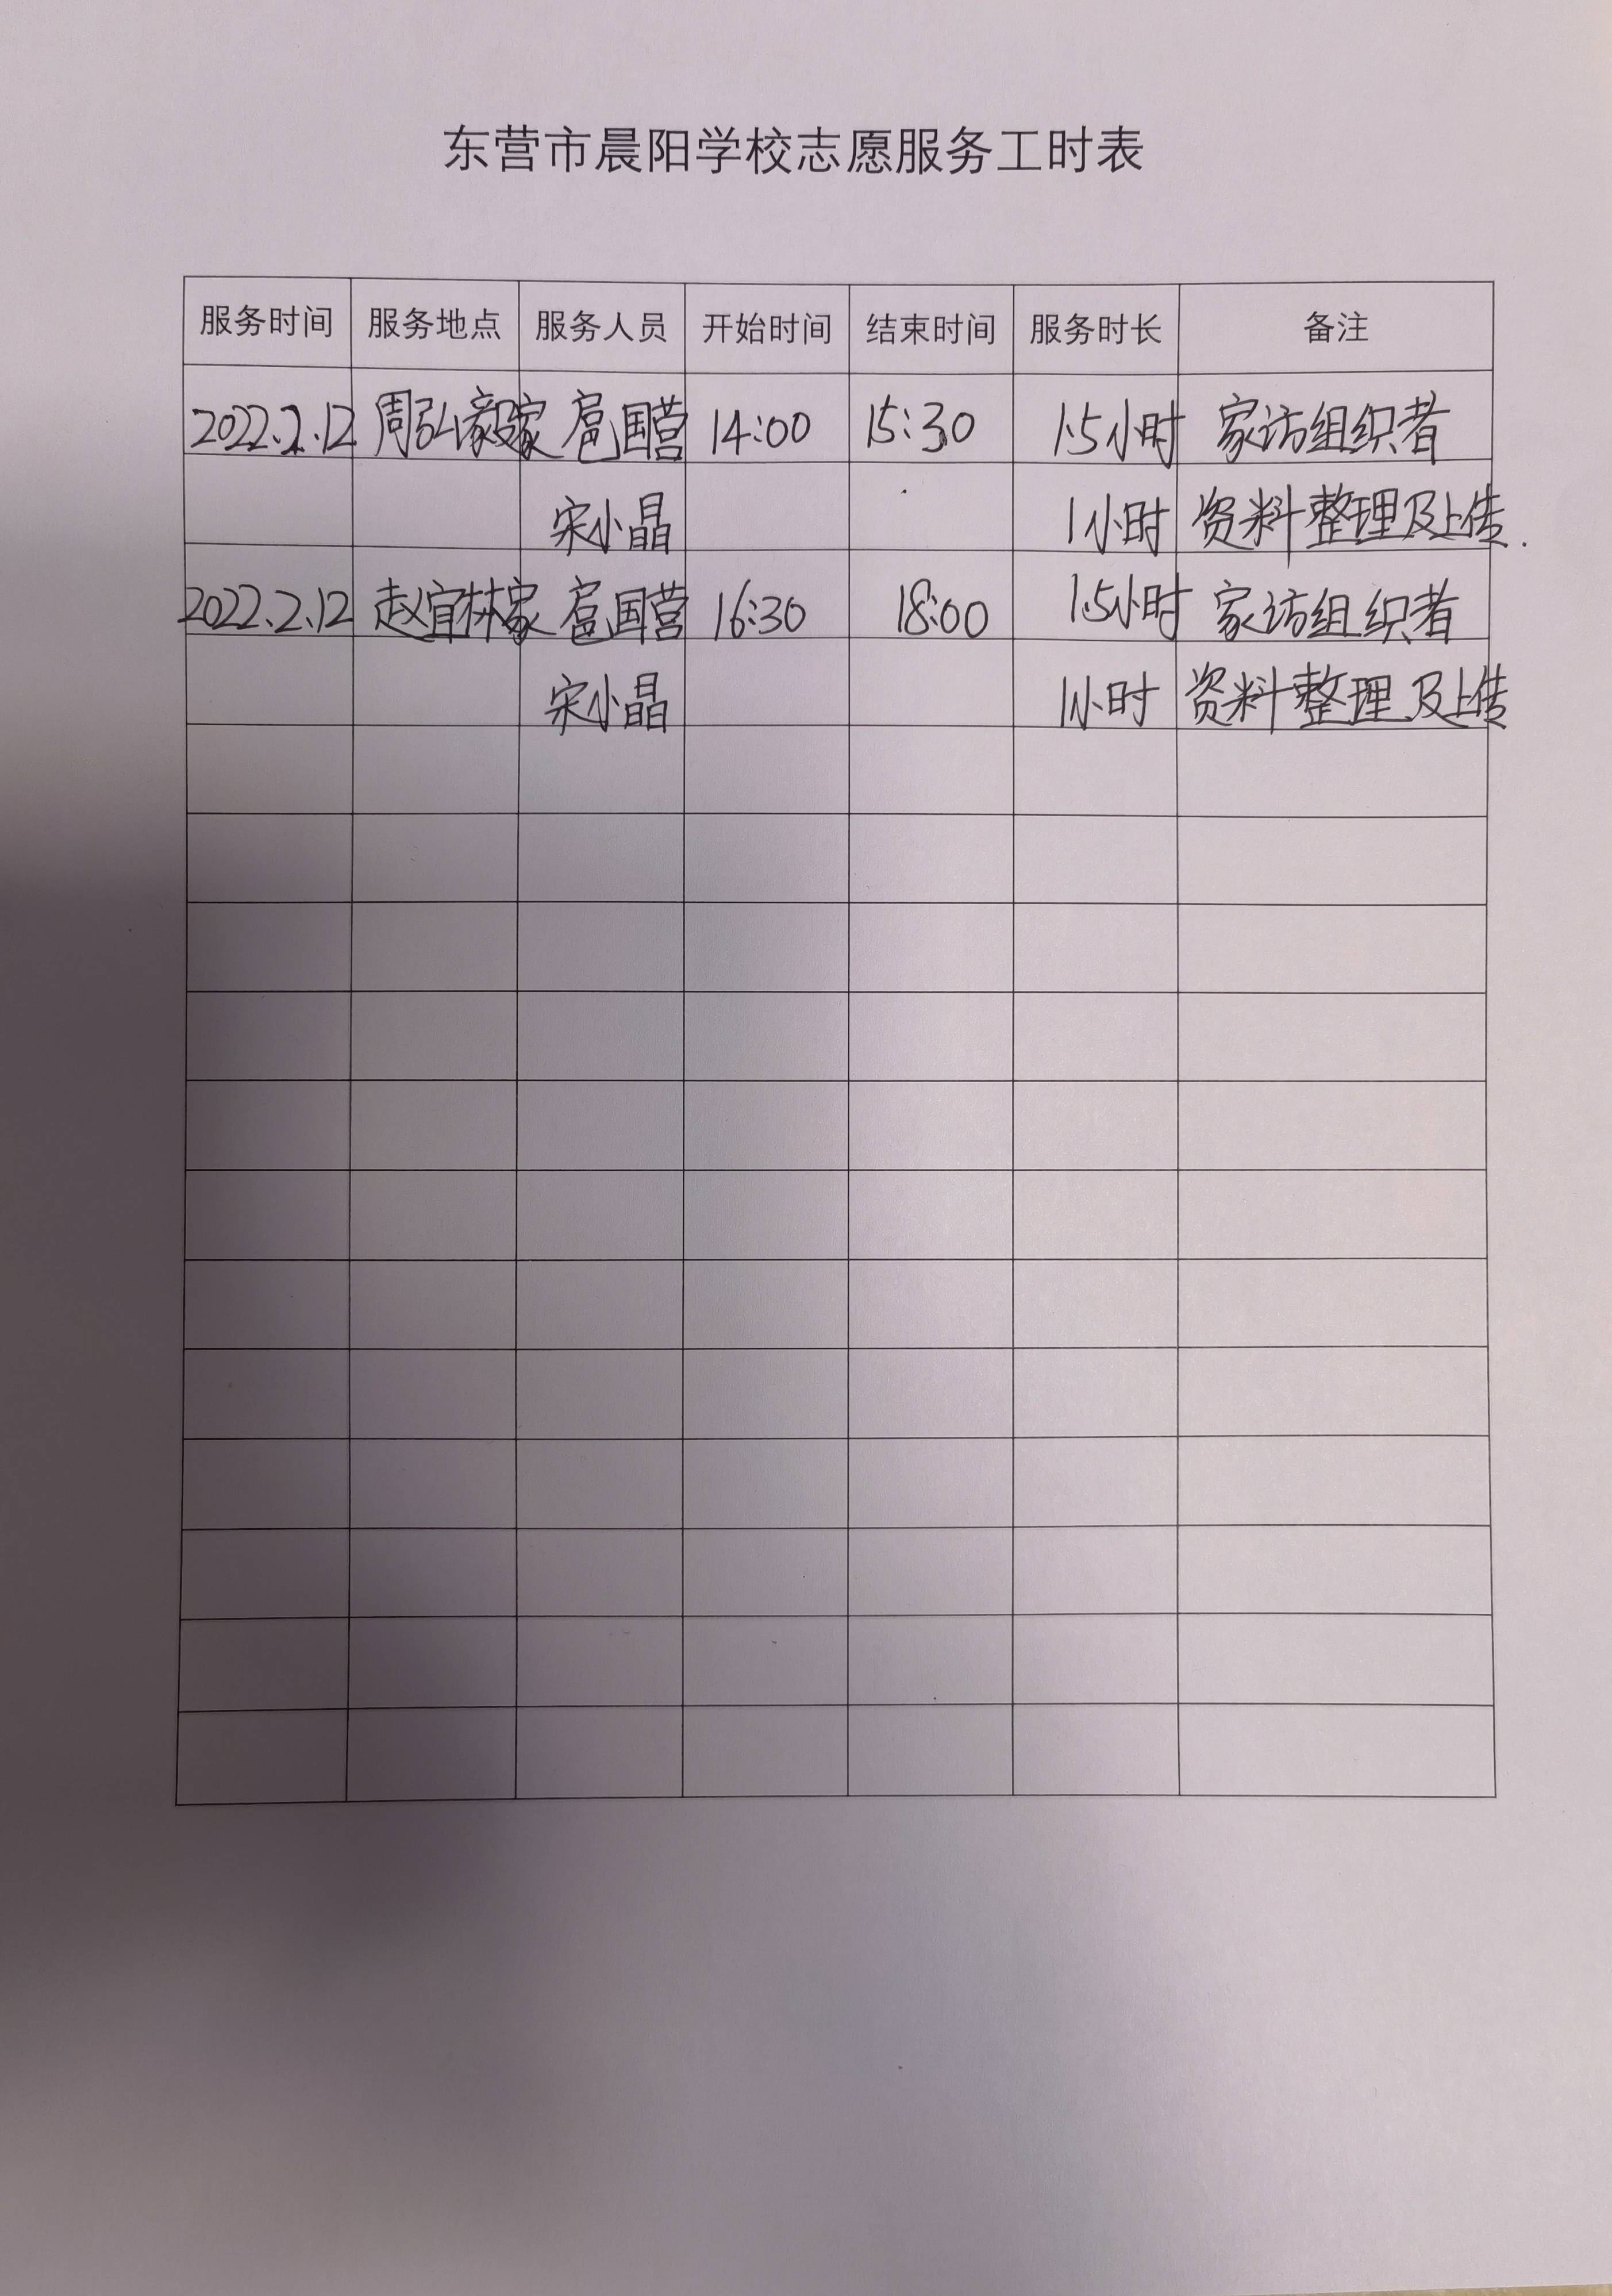 东营市晨阳学校志愿服务工时表
服务时间 服务地点 服务人员 开始时间 结束时间 服务时长 备注
2022.2.12 周弘毅家 扈国营 14:00 15:30 1.5小时 家访组织者
宋小晶 1小时 资料整理及上传.
2022.2.12 赵宜林家 扈国营 16:30 18:00 1.5小时 家访组织者
宋小晶 1小时 资料整理及上传